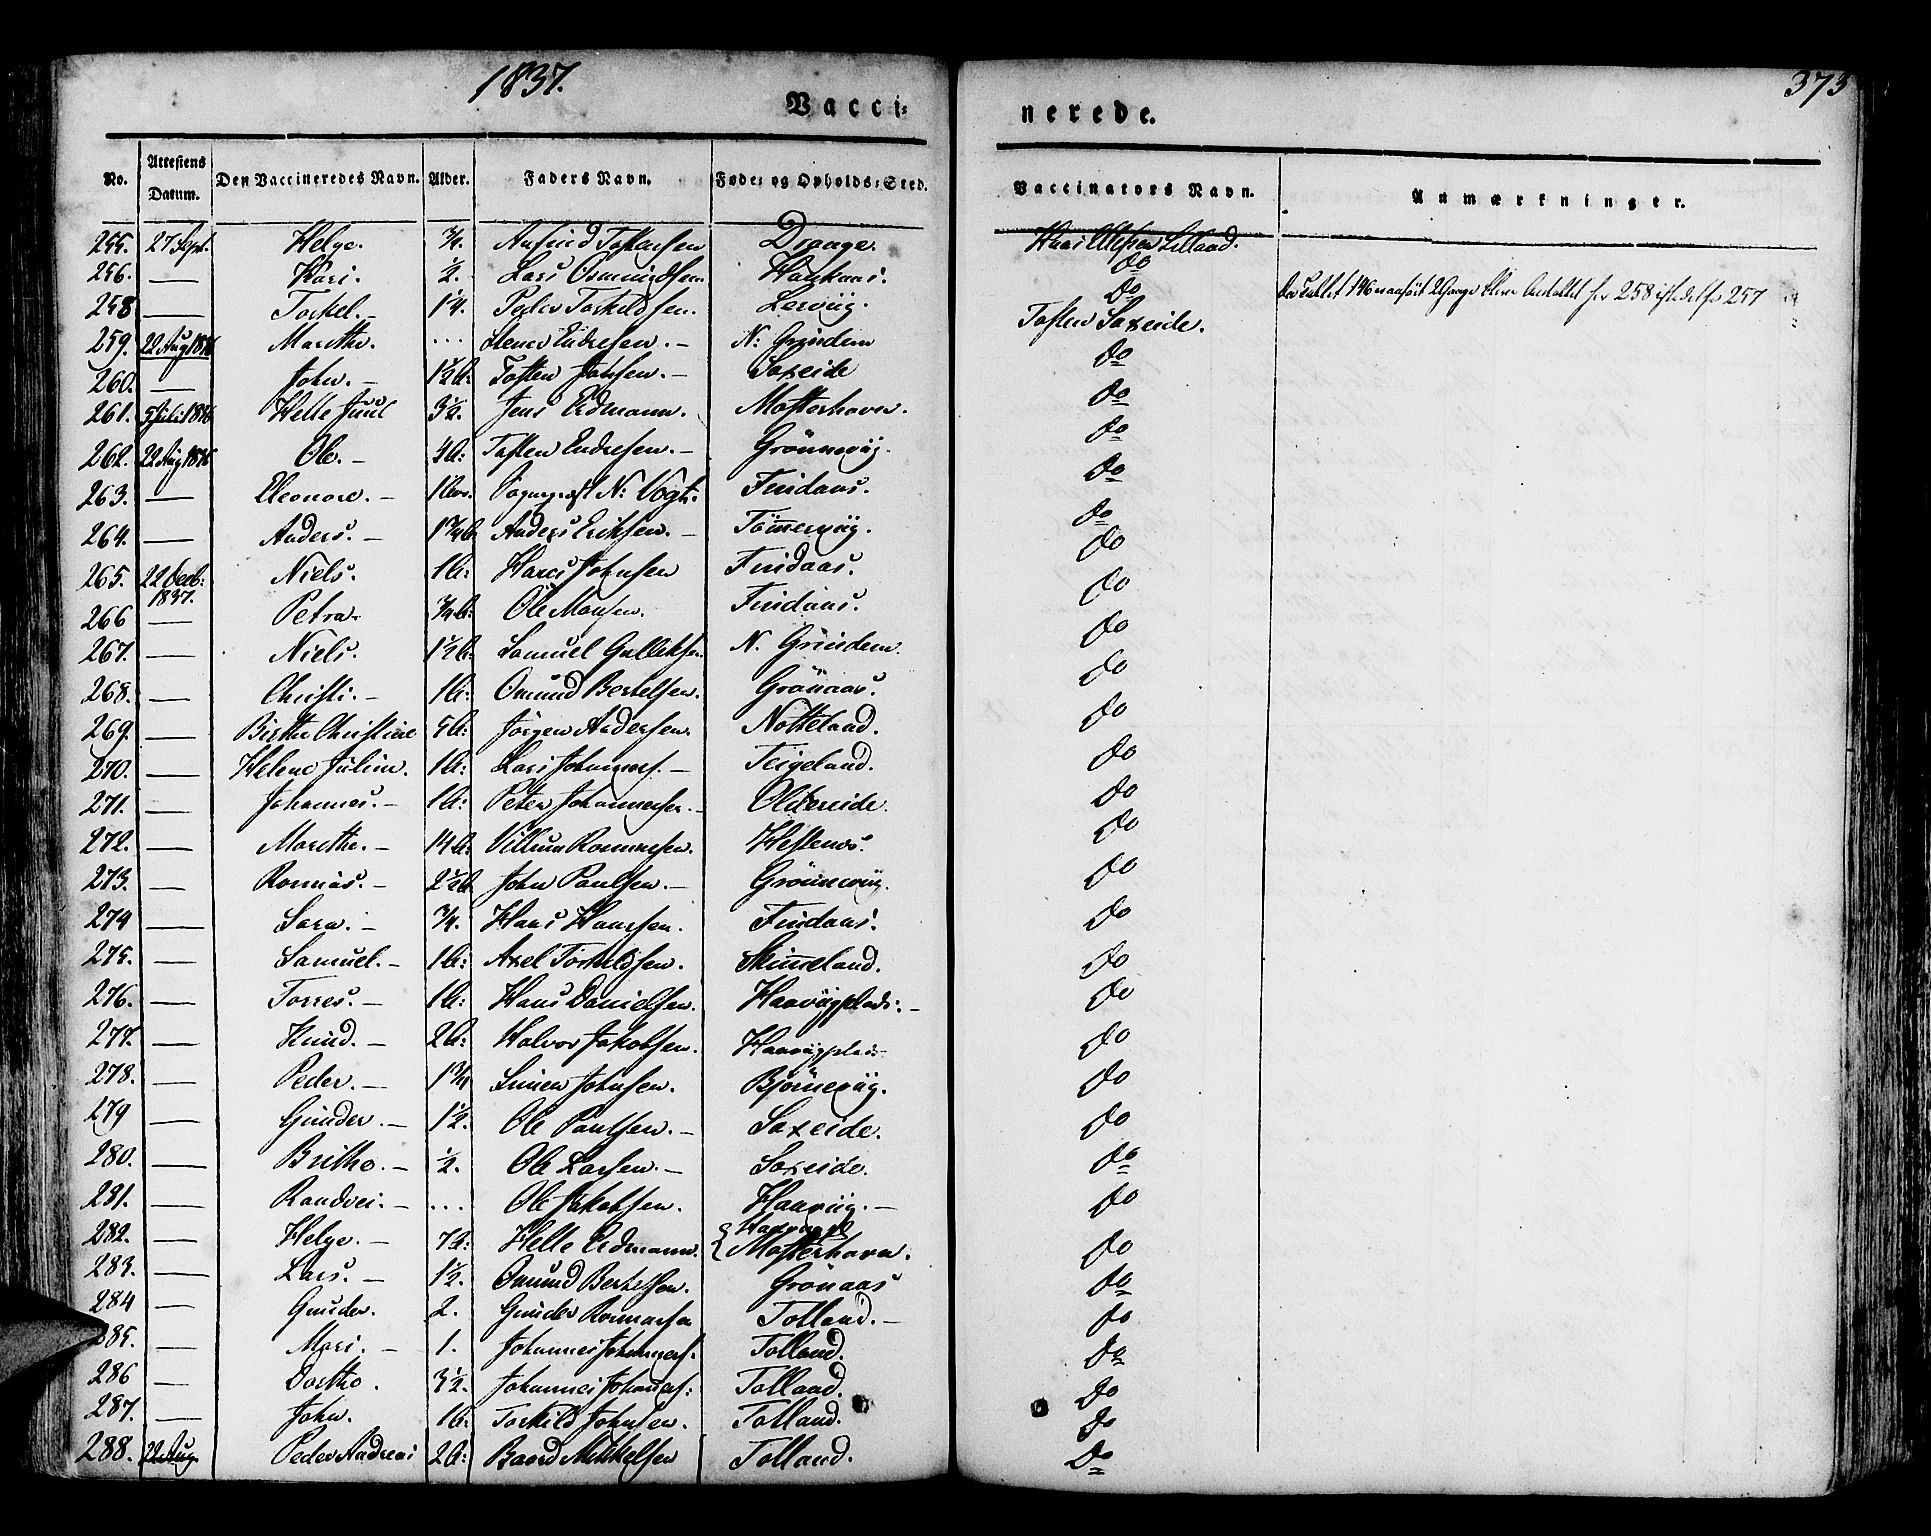 1837.
373
Vacci=
nerede.
No. Attestens Datum. Den Vaccineredes Navn. Alder. Faders Navn. Føde= og Opholds=Sted. Vaccinators Navn. Anmærkninger.
255. 27 Sept. Helge. 3/4. Tostensen Drange. Hans Olessen
256. — Kari. 1/2. Lars Osmundsen. Haukaas. do
258 — Torkel. — 1/4. Peder Torkildsen. Lervüg. do 146 anført 2 Gange bliver Antallet her 258 istedetfor 257
259. 22 Aug 1836 Marethe. ... Endresen. — N: Grindem Tosten Saxeide.
260. — John. — 1 1/2 A: Tosten Johnsen. — Saxeide do
261. 5 Juli 1836 Helle Juul 3 1/2. Jens Erdmann. Mosterhavn. do
262. 22 Aug 1836 Ole. — Tosten Endresen. — Grönnevüg. do
263. — Eleonore. — N: Vogt. Findaas. do
264. — Anders. — 1 3/4 A Anders Eriksen. — Tömmervüg. do
265. 22 Decb: 1837. Niels. 1 A: Hans Johnsen Findaas. do
266 — Petra. 3/4 A: Ole Monsen. Findaas. do
267. — Niels. 1 1/2 A: Samuel Gulleksen. N. Grindem. do
268. — Christi. — 1 A: Omund Bertelsen. Grönaas. do
269. — Birthe Christine 5 A: Jörgen Andersen. Notteland. do
270. — Helene Juline. 1 A: Lars Johanness. — Teigeland. do
271. — Johannes. — 1 A: Peter Johannessen. — Oldereide. do
272. — Marethe. — 14 A: Villum Rasmussen. Hestenes. do
273. — Rasmus. — 2 1/2 A John Paulsen. — Grönnevüg. do
274 — Sara. — 3/4. Hans Hansen. Findaas. do
275. — Samuel. — 1 A: Axel Torkildsen. Skimmeland. do
276. — Torres. — 1 A: Hans Danielsen. Haavügplads: — do
277. — Knud. — 2 A: Halvor Jakobsen. Haavügplads do
278. — Peder. — 1 3/4 Simen Johnsen. Björnevüg. do
279 — Gunder. — 1 1/2. Ole Paulsen. — Saxeide. do
280. — Brithe. — 1/2. Ole Larsen. — Saxeide. do
281. — Randvei. — ... Ole Jakobsen. Haavüg. — do
282. — Helge. — 7 A: Helle Erdmann. Mosterhavn. do
283. — Lars. — 1 1/2. Omund Bertelsen. Grönaas do
284 — Gunder. 2. Gunder Rasmussen Tolland. — do
285. — Mari. — 1. Johannes Johanness. Tolland. do
286 — Dorthe. 3 1/2. Johannes Johaness: Tolland. do
287. — John. 1 A: Torkild Johnsen. Tolland. do
288. 22 Aug. Peder Andreas 2 A: Baard Mikkelsen Tolland. do